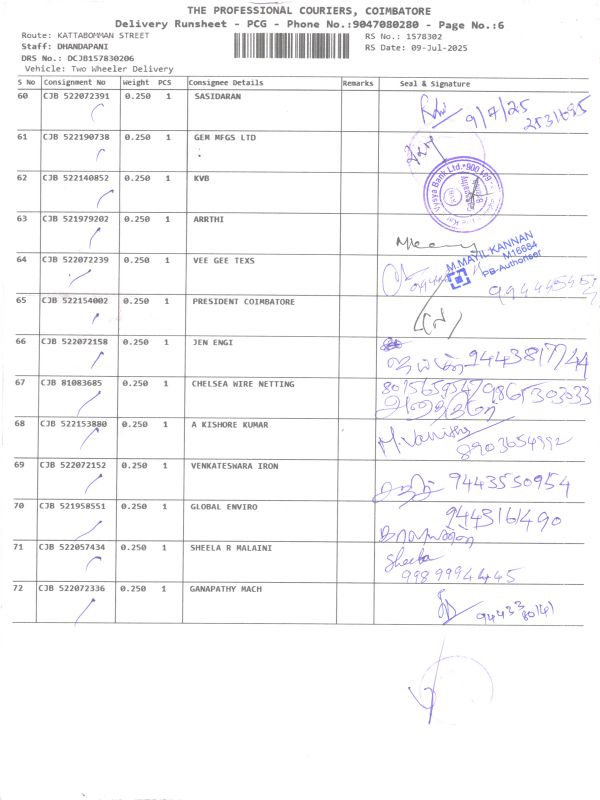 THE PROFESSIONAL COURIERS, COIMBATORE
Delivery Runsheet - PCG - Phone No.:9047080280 - Page No.:6
Route: KATTABOMMAN STREET
RS No.: 1578302
Staff: DHANDAPANI
RS Date: 09-Jul-2025
DRS No.: DCJB157830206
Vehicle: Two Wheeler Delivery
S No Consignment No Weight PCS Consignee Details Remarks Seal & Signature
60 CJB 522072391 0.250 1 SASIDARAN 9/7/25
61 CJB 522190738 0.250 1 GEM MFGS LTD
62 CJB 522140852 0.250 1 KVB Vysya Bank Ltd.
63 CJB 521979202 0.250 1 ARRTHI
M.MAYIL KANNAN
M16684
PB-Authoriser
64 CJB 522072239 0.250 1 VEE GEE TEXS
65 CJB 522154002 0.250 1 PRESIDENT COIMBATORE
66 CJB 522072158 0.250 1 JEN ENGI 9443817744
67 CJB 81083685 0.250 1 CHELSEA WIRE NETTING 8015659547 9865303033
68 CJB 522153880 0.250 1 A KISHORE KUMAR M. Vanitha
8903654992
69 CJB 522072152 0.250 1 VENKATESWARA IRON 9443550954
70 CJB 521958551 0.250 1 GLOBAL ENVIRO 9443161490
71 CJB 522057434 0.250 1 SHEELA R MALAINI Sheeba
9989994445
72 CJB 522072336 0.250 1 GANAPATHY MACH